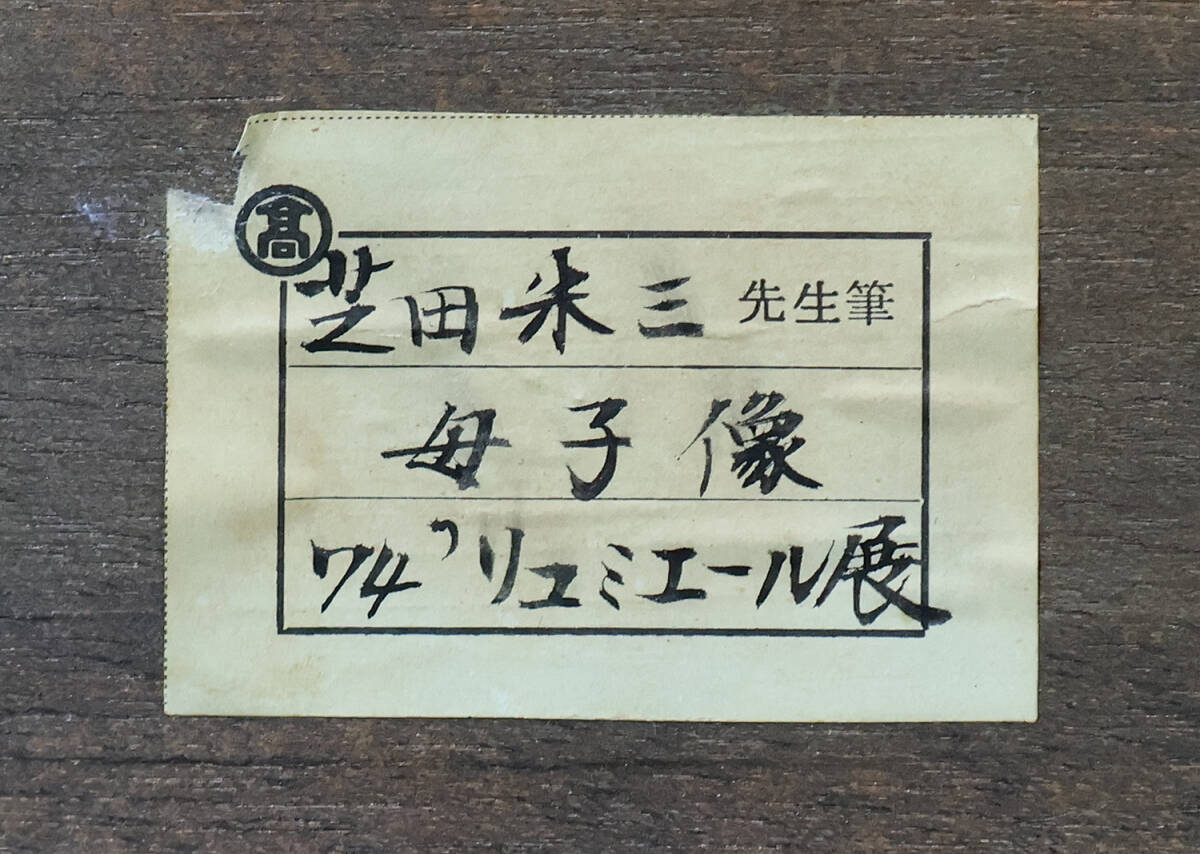 髙
芝田米三 先生筆
母子像
74' リュミエール展